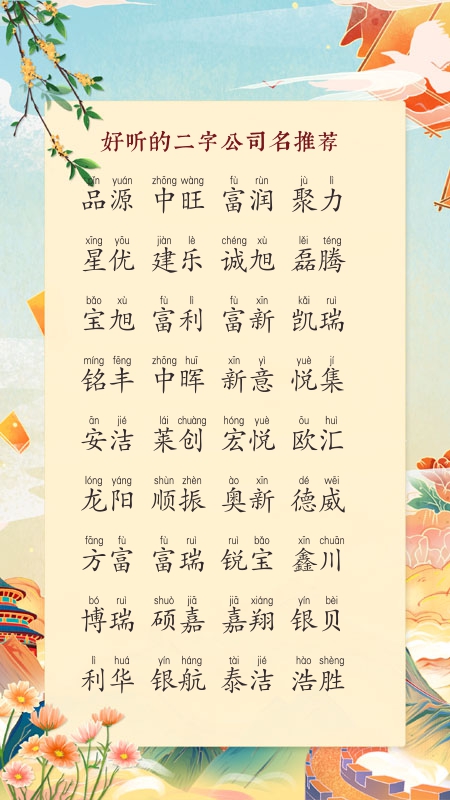 好听的二字公司名推荐
pǐn yuán zhōng wàng fù rùn jù lì
品源 中旺 富润 聚力
xīng yōu jiàn lè chéng xù lěi téng
星优 建乐 诚旭 磊腾
bǎo xù fù lì fù xīn kǎi ruì
宝旭 富利 富新 凯瑞
míng fēng zhōng huī xīn yì yuè jí
铭丰 中晖 新意 悦集
ān jié lái chuàng hóng yuè ōu huì
安洁 莱创 宏悦 欧汇
lóng yáng shùn zhèn ào xīn dé wēi
龙阳 顺振 奥新 德威
fāng fù fù ruì ruì bǎo xīn chuān
方富 富瑞 锐宝 鑫川
bó ruì shuò jiā jiā xiáng yín bèi
博瑞 硕嘉 嘉翔 银贝
lì huá yín háng tài jié hào shèng
利华 银航 泰洁 浩胜